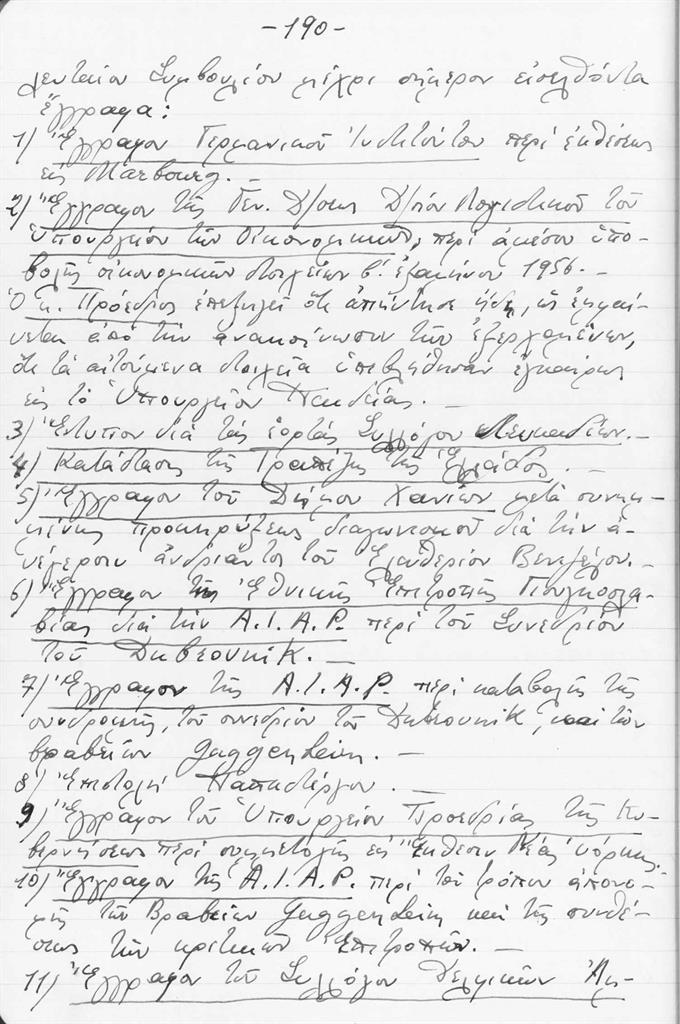 -190-
λευταίου Συμβουλίου μέχρι σήμερον εἰσελθόντα
ἔγγραφα:
1) Ἔγγραφον Γερμανικοῦ Ἰνστιτούτου περί ἐκθέσεως
εἰς Marbourg. —
2) Ἔγγραφον τῆς Γεν. Δ/σεως Δ/σίου Λογιστικοῦ τοῦ
Ὑπουργείου τῶν Οἰκονομικῶν, περί ἀμέσου ὑπο-
βολῆς οἰκονομικῶν στοιχείων β! ἑξαμήνου 1956. —
Ὁ κ. Πρόεδρος ἐπεξηγεῖ ὅτι ἀπήντησε ἤδη, ὡς ἐμφαί-
νεται ἀπό τήν ἀνακοίνωσιν τῶν ἐξερχομένων,
ὅτι τά αἰτούμενα στοιχεῖα ὑπεβλήθησαν ἐγκαίρως
εἰς τό Ὑπουργεῖον Παιδείας. —
3) Ἔντυπον διά τάς ἑορτάς Συλλόγου Λευκαδίων. —
4) Κατάστασις τῆς Τραπέζης τῆς Ἑλλάδος. —
5) Ἔγγραφον τοῦ Δήμου Χανίων μετά συνημ-
μένης προκηρύξεως διαγωνισμοῦ διά τήν ἀ-
νέγερσιν ἀνδριάντος τοῦ Ἐλευθερίου Βενιζέλου. —
6) Ἔγγραφον τῆς Ἐθνικῆς Ἐπιτροπῆς Γιουγκοσλα-
βίας διά τήν A.I.A.P. περί τοῦ Συνεδρίου
τοῦ Διβρουνίκ. —
7) Ἔγγραφον τῆς A.I.A.P. περί καταβολῆς τῆς
συνδρομῆς, τοῦ συνεδρίου τοῦ Διβρουνίκ, καί τῶν
βραβείων Guggenheim. —
8) Ἐπιστολή Παπαστέργιου. —
9) Ἔγγραφον τοῦ Ὑπουργείου Προεδρίας τῆς Κυ-
βερνήσεως περί συμμετοχῆς εἰς Ἔκθεσιν Νέας Ὑόρκης.
10) Ἔγγραφον τῆς A.I.A.P. περί τοῦ τρόπου ἀπονο-
μῆς τῶν Βραβείων Guggenheim καί τῆς συνθέ-
σεως τῶν κριτικῶν Ἐπιτροπῶν. —
11) Ἔγγραφον τοῦ Συλλόγου Δελφικῶν